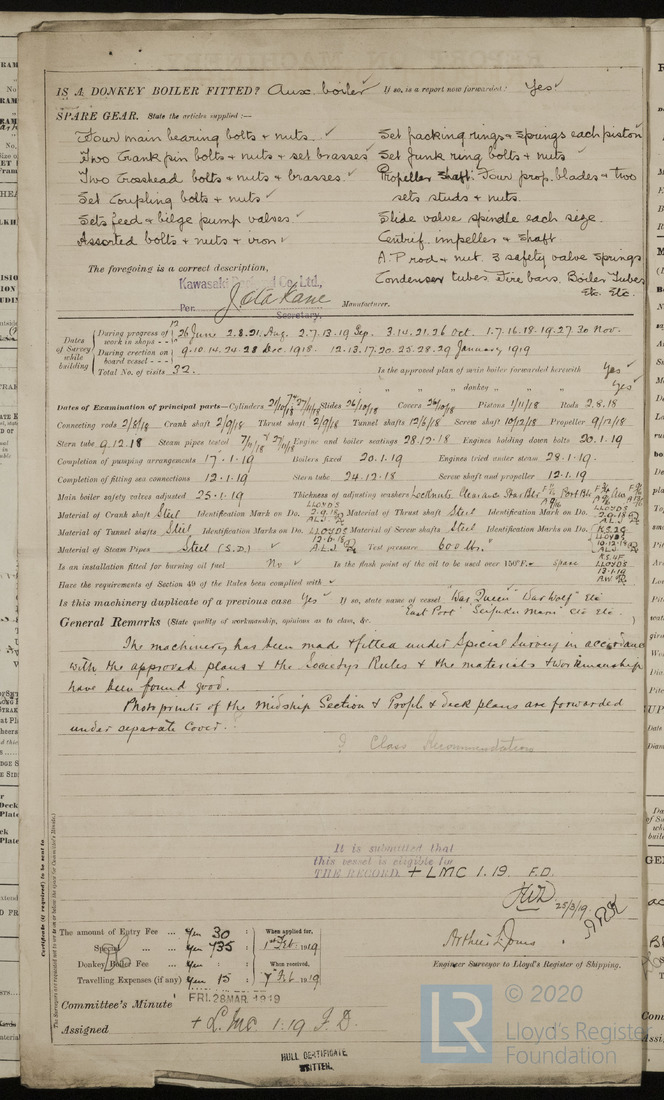 IS A DONKEY BOILER FITTED? Aux boiler ✓ If so, is a report now forwarded? Yes ✓
SPARE GEAR. State the articles supplied:—
Four main bearing bolts + nuts. ✓ Set packing rings + springs each piston
Two Crank pin bolts + nuts + set brasses Set Junk ring bolts + nuts ✓
Two Crosshead bolts + nuts + brasses. ✓ Propeller shaft. Four prop. blades + two
Set Coupling bolts + nuts ✓ sets studs + nuts.
Sets feed + bilge pump valves. ✓ Slide valve spindle each size.
Assorted bolts + nuts + iron ✓ Centrif. impeller + shaft
A.P rod + nut. 3 safety valve springs
The foregoing is a correct description,
Condenser tubes Fire bars. Boiler Tubes
Etc. Etc.
Kawasaki Co., Ltd.,
Per Manufacturer.
Secretary.
Dates of Survey while building
During progress of work in shops - - 26 June 2.8.21. Aug. 2.7.13.19 Sep. 3.14.21.26 Oct. 1.7.16.18.19.27.30 Nov.
During erection on board vessel - - - 9.10.14.24.28 Dec 1918. 12.13.17.20.25.28.29 January 1919
Total No. of visits 32. Is the approved plan of main boiler forwarded herewith Yes ✓
" " " donkey " " Yes ✓
Dates of Examination of principal parts—Cylinders Slides 26/10/18 Covers 26/10/18 Pistons 1/11/18 Rods 2.8.18
Connecting rods 2/8/18 Crank shaft 2/9/18 Thrust shaft 2/9/18 Tunnel shafts 12/6/18 Screw shaft 10/12/18 Propeller 9/12/18
Stern tube 9.12.18 Steam pipes tested Engine and boiler seatings 28.12.18 Engines holding down bolts 20.1.19
Completion of pumping arrangements 17.1.19 Boilers fixed 20.1.19 Engines tried under steam 28.1.19.
Completion of fitting sea connections 12.1.19 Stern tube 24.12.18 Screw shaft and propeller 12.1.19
Main boiler safety valves adjusted 25.1.19 Thickness of adjusting washers Locknuts. Clearance
Material of Crank shaft Steel Identification Mark on Do. LLOYDS 2.9.18 A.L.J. Material of Thrust shaft Steel Identification Mark on Do. LLOYDS 2.9.18 A.L.J
Material of Tunnel shafts Steel Identification Marks on Do. LLOYDS 12.6.18 A.L.J. Material of Screw shafts Steel Identification Marks on Do. LLOYDS 10.12.18 ALJ
Material of Steam Pipes Steel (S.D.) ✓ Test pressure 600 lbs.
Is an installation fitted for burning oil fuel No ✓ Is the flash point of the oil to be used over 150°F. Spare LLOYDS 12.1.19
Have the requirements of Section 49 of the Rules been complied with ✓
Is this machinery duplicate of a previous case Yes ✓ If so, state name of vessel "War Queen" "War Wolf" Etc
"East Port" "Seifuku Maru" etc etc.
General Remarks (State quality of workmanship, opinions as to class, &c.
The machinery has been made + fitted under Special Survey in accordance
with the approved plans + the Societys Rules + the materials + workmanship
have been found good.
Photoprints of the Midship Section + Profile + deck plans are forwarded
under separate Cover.
Class Recommendation
It is submitted that
this vessel is eligible for
THE RECORD. + LMC 1.19. F.D.
25/3/19.
The amount of Entry Fee ... Yen 30 : When applied for.
Special ... ... Yen 735 : 1st Feb 1919
Donkey Boiler Fee ... Yen : When received.
Travelling Expenses (if any) Yen 15 : 7th Feb 1919
Arthur L Jones
Engineer Surveyor to Lloyd's Register of Shipping.
Committee's Minute FRI. 28 MAR. 1919
Assigned + L.M.C 1.19 F.D.
HULL CERTIFICATE
WRITTEN.
Certificate (if required) to be sent to
The Surveyors are requested not to write on or below the space for Committee's Minute.)
LR
© 2020
Lloyd's Register
Foundation